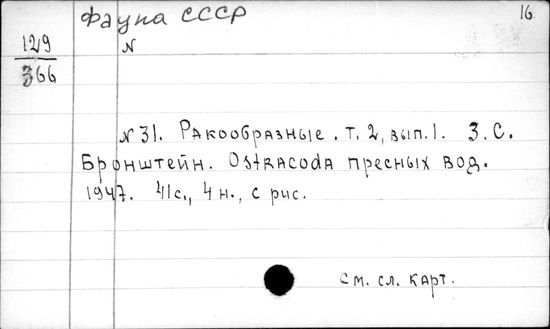 Фауна СССР
16
129
366
N
N 31. Ракообразные. Т. 2, вып. 1. З. С.
Бронштейн. Ostracoda пресных вод.
1947. 41с., 4 н., с рис.
см. сл. карт.